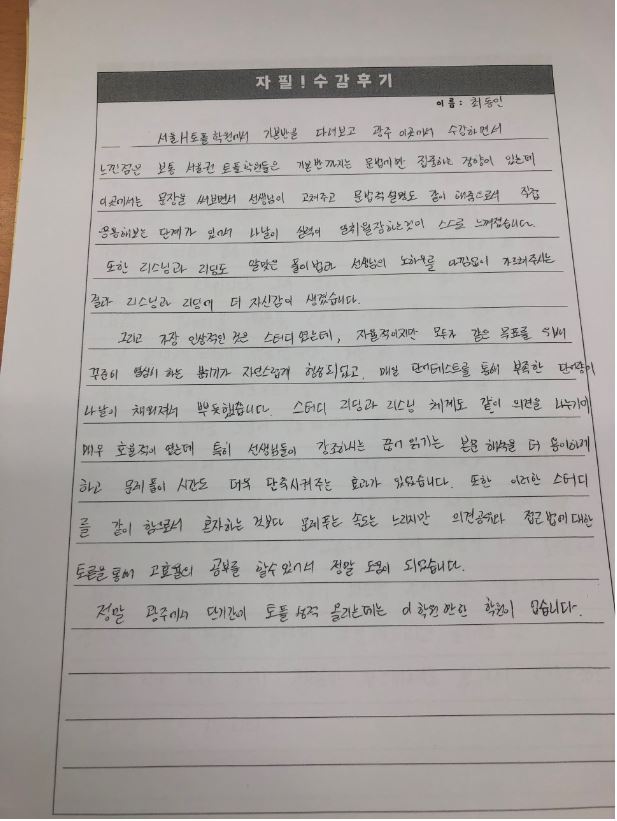 자필!수강후기
이름: 최동인
서울H토플학원에서 기본반을 다녀보고 광주 이곳에서 수강하면서
느낀점은 보통 서울권 토플학원들은 기본반까지는 문법에만 집중하는 경향이 있는데
이곳에서는 문장을 써보면서 선생님이 고쳐주고 문법적설명도 같이 해줌으로서 직접
응용해보는 단계가 있어서 나날이 실력이 일취월장하는것이 스스로 느껴졌습니다.
또한 리스닝과 리딩도 알맞은 풀이법과 선생님의 노하우를 아낌없이 가르쳐주시는
결과 리스닝과 리딩에 더 자신감이 생겼습니다.
그리고 가장 인상적인 것은 스터디 였는데, 자율적이지만 모두가 같은 목표를 위해
꾸준히 열심히 하는 분위기가 자연스럽게 형성되었고, 매일 단어테스트를 통해 부족한 단어량이
나날이 채워져서 뿌듯했습니다. 스터디 리딩과 리스닝 체계도 같이 의견을 나누기에
매우 효율적이 였는데 특히 선생님들이 강조하시는 끊어 읽기는 본문 해석을 더 용이하게
하고 문제풀이 시간도 더욱 단축시켜주는 효과가 있었습니다. 또한 이러한 스터디
를 같이 함으로서 혼자하는 것보다 문제푸는 속도는 느리지만 의견공유와 접근법에대한
토론을 통해 고효율의 공부를 할수있어서 정말 도움이 되었습니다.
정말 광주에서 단기간에 토플 성적 올리는데는 이 학원 만한 학원이 없습니다.